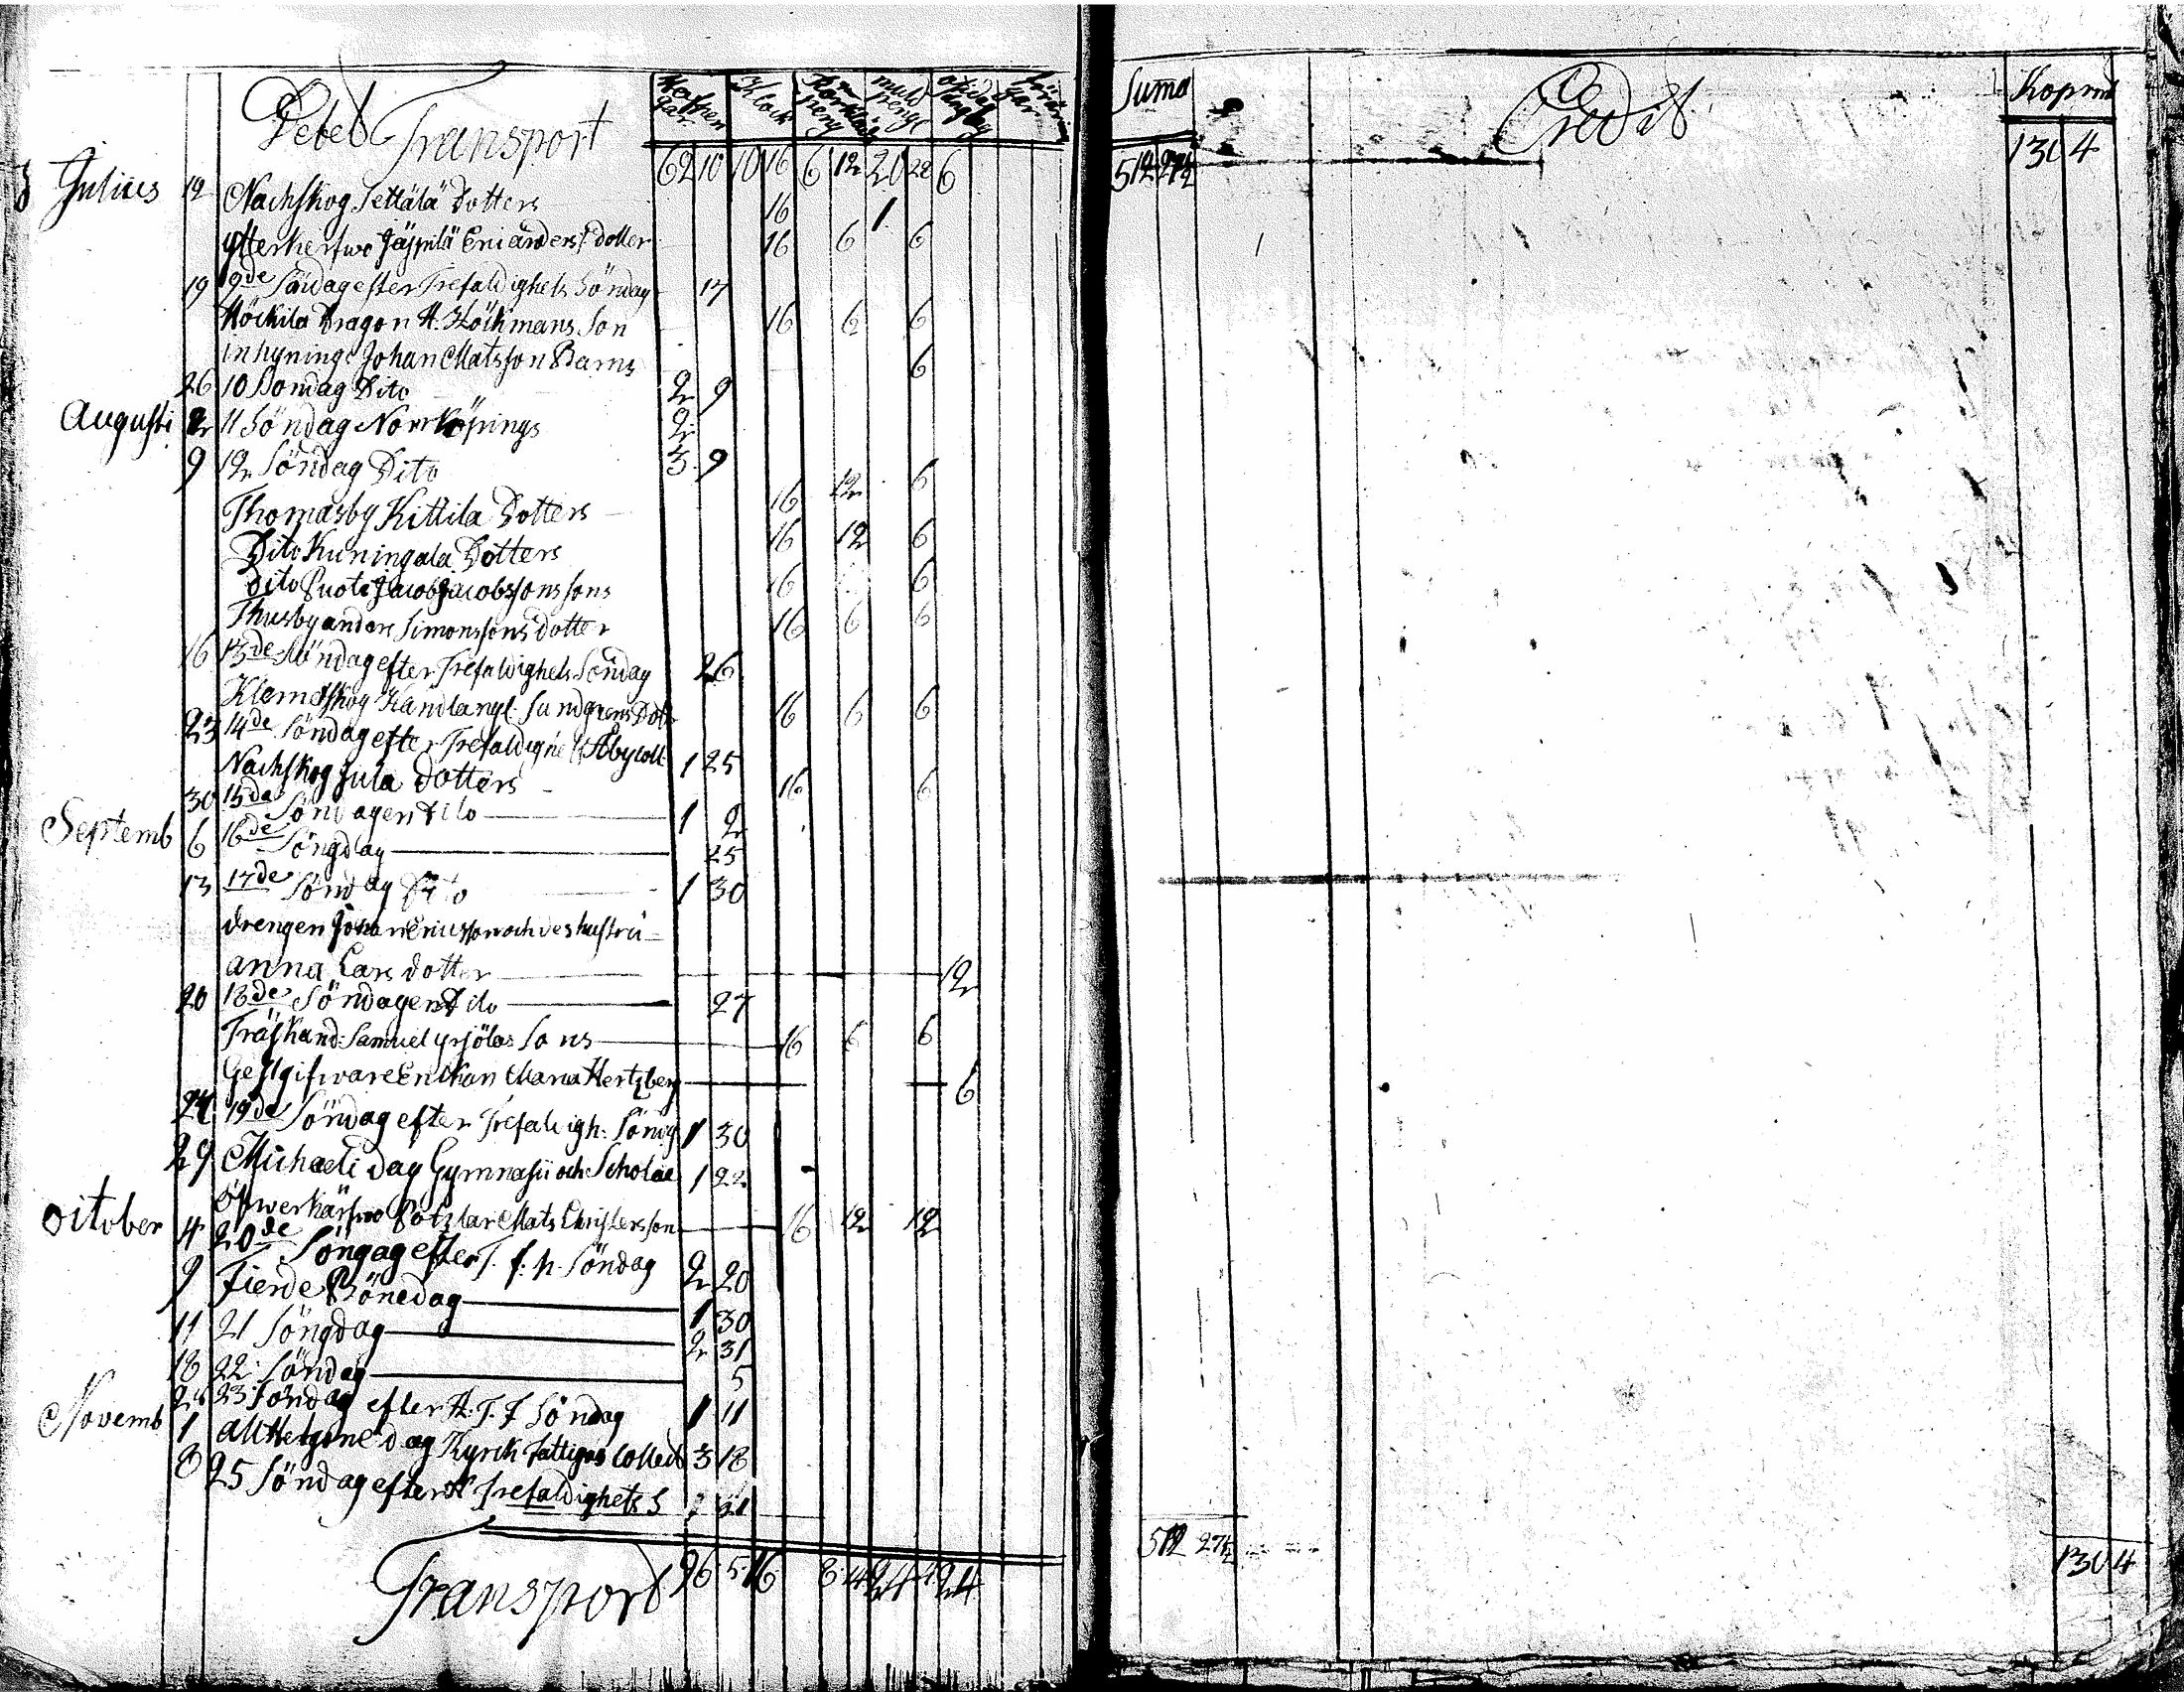 Debet Transport Klock
62 10 10 16 6 12 20 28 6
Julius 12 Nackskog Settälä Dotters 16 1
ytterkerfwo Jäppilä Eric anders: dotter 16 6 6
19 9de Söndag efter Trefaldighets Söndag 17
Höckila Dragon H. Höökmans Son 16 6 6
Inhysings Johan Matsson Barns 6
26 10 Sondag Dito 2 9
Augusti 2 11 Söndag Norrköpings 2
9 12 Söndag Dito 3 9
Thomasby Kittila Dotters 16 12 6
Dito Kuningala Dotters 16 12 6
dito Puoti Jacob Jacobssons sons 16 6
Thusby anders Simonssons dotter 16 6 6
16 13de Söndag efter Trefaldighets Söndag 26
Klemetskog Handlangl: Sundgrens Dott 16 6 6
23 14de Söndag efter Trefaldighets Åby coll 1 25
Nackskog Jula dotters 16 6
30 15da Söndagen Dito 1 2
Septemb 6 16de Söngdag 25
13 17de Söndag Dito 1 30
drengen Johan Ericsson och des hustru
anna Lars dotter 12
20 18de Söndagen Dito 27
Träskand: Samuel yrjölas Sons 16 6 6
Gestgifware Enckan Maria Hertzberg 6
27 19de Söndag efter Trefaldigh: Söndg 1 30
29 Michaeli dag Gymnasii och Scholae 1 22
öfwerkärfwo Potzlar Mats Christersson 16 12 12
October 4 20de Söngag efter T. f. h. Söndag 2 20
9 Fierde Bönedag 1 30
11 21 Söngdag 2 31
18 22 Söndag 5
25 23 Söndag efter H. T. F Söndag 1 11
Novemb 1 All Helgone dag Kyrck fattigas collect 3 18
8 25 Söndag efter H Trefaldighets S 2 31
Transport 96 5 16 8 4 24 4 24
Suma Credit
512 27½ 130 4
512 27½ 130 4